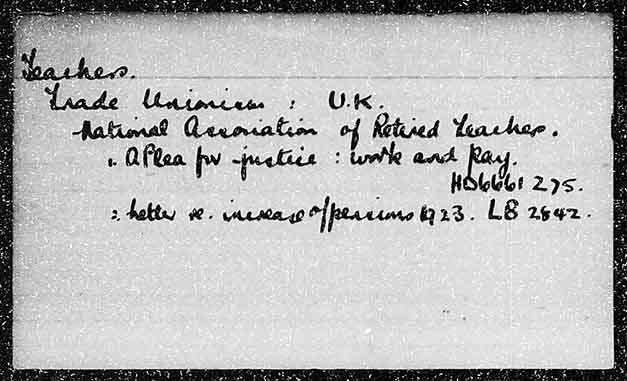 Teachers.
Trade Unionism : U.K.
National Association of Retired Teachers.
: A Plea for justice : work and pay.
HD6661 275.
: Letter re. increase of pensions 1923. LB 2842.